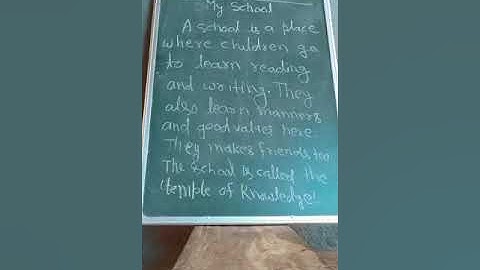 My School
A School is a place
where children go
to learn reading
and writing. They
also learn manners
and good values here.
They makes friends too
The School is called the
"temple of Knowledge"